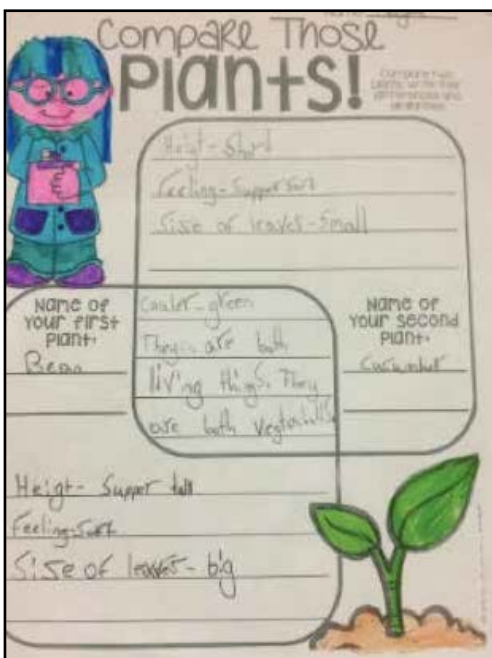 Compare Those
Plants!
Compare two
plants. Write their
differences and
Heigt - Short
Feeling - Supper soft
Sise of leaves - Small
Name of
your first
plant:
Bean
Couler - green
They are both
living things. They
are both
Name of
your second
plant:
Heigt - Supper tall
Feeling - Soft
Sise of leaves - big